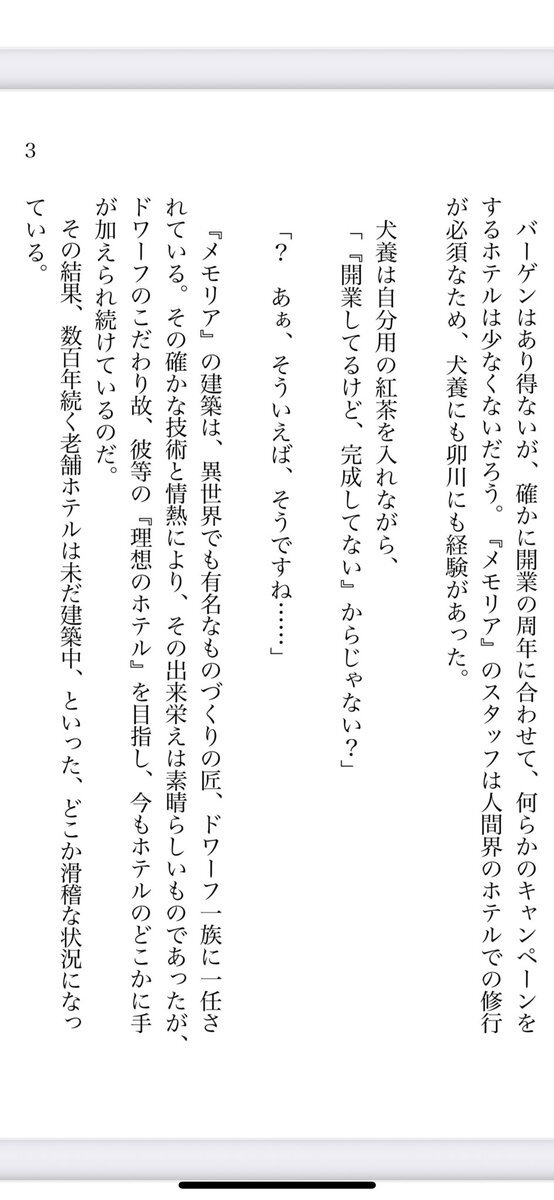 バーゲンはあり得ないが、確かに開業の周年に合わせて、何らかのキャンペーンを
するホテルは少なくないだろう。『メモリア』のスタッフは人間界のホテルでの修行
が必須なため、犬養にも卯川にも経験があった。
犬養は自分用の紅茶を入れながら、
「『開業してるけど、完成してない』からじゃない？」
「？　あぁ、そういえば、そうですね……」
『メモリア』の建築は、異世界でも有名なものづくりの匠、ドワーフ一族に一任さ
れている。その確かな技術と情熱により、その出来栄えは素晴らしいものであったが、
ドワーフのこだわり故、彼等の『理想のホテル』を目指し、今もホテルのどこかに手
が加えられ続けているのだ。
その結果、数百年続く老舗ホテルは未だ建築中、といった、どこか滑稽な状況になっ
ている。
3